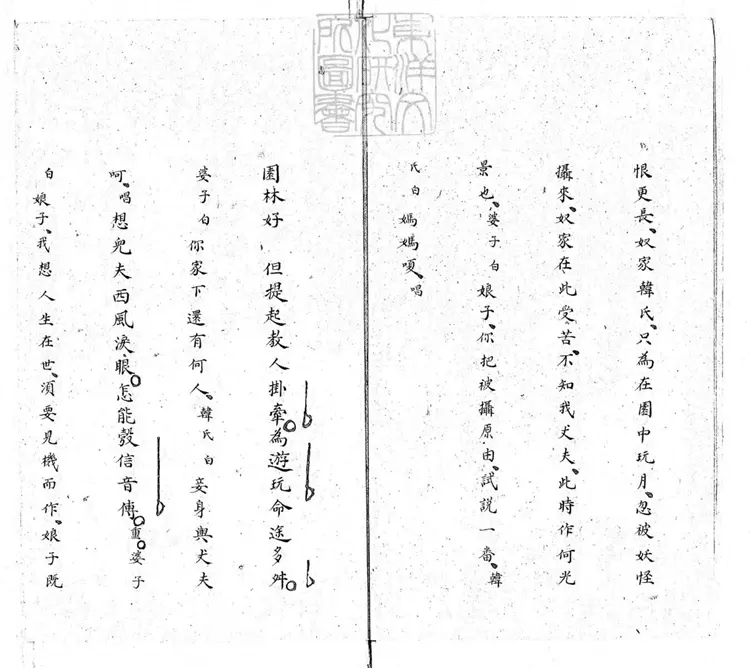 恨更長、奴家韓氏、只為在園中玩月、忽被妖怪
攝來、奴家在此受苦、不知我丈夫、此時作何光
景也、婆子白娘子、你把被攝原由、試說一番、韓
氏白媽媽嗄、唱
園林好 但提起教人掛牽。為遊玩命途多舛。
婆子白你家下還有何人、韓氏白妾身與丈夫
呵、唱想兒夫西風淚眼。怎能彀信音傳。重。婆子
白娘子、我想人生在世、須要見機而作、娘子既
東洋文化研究所圖書